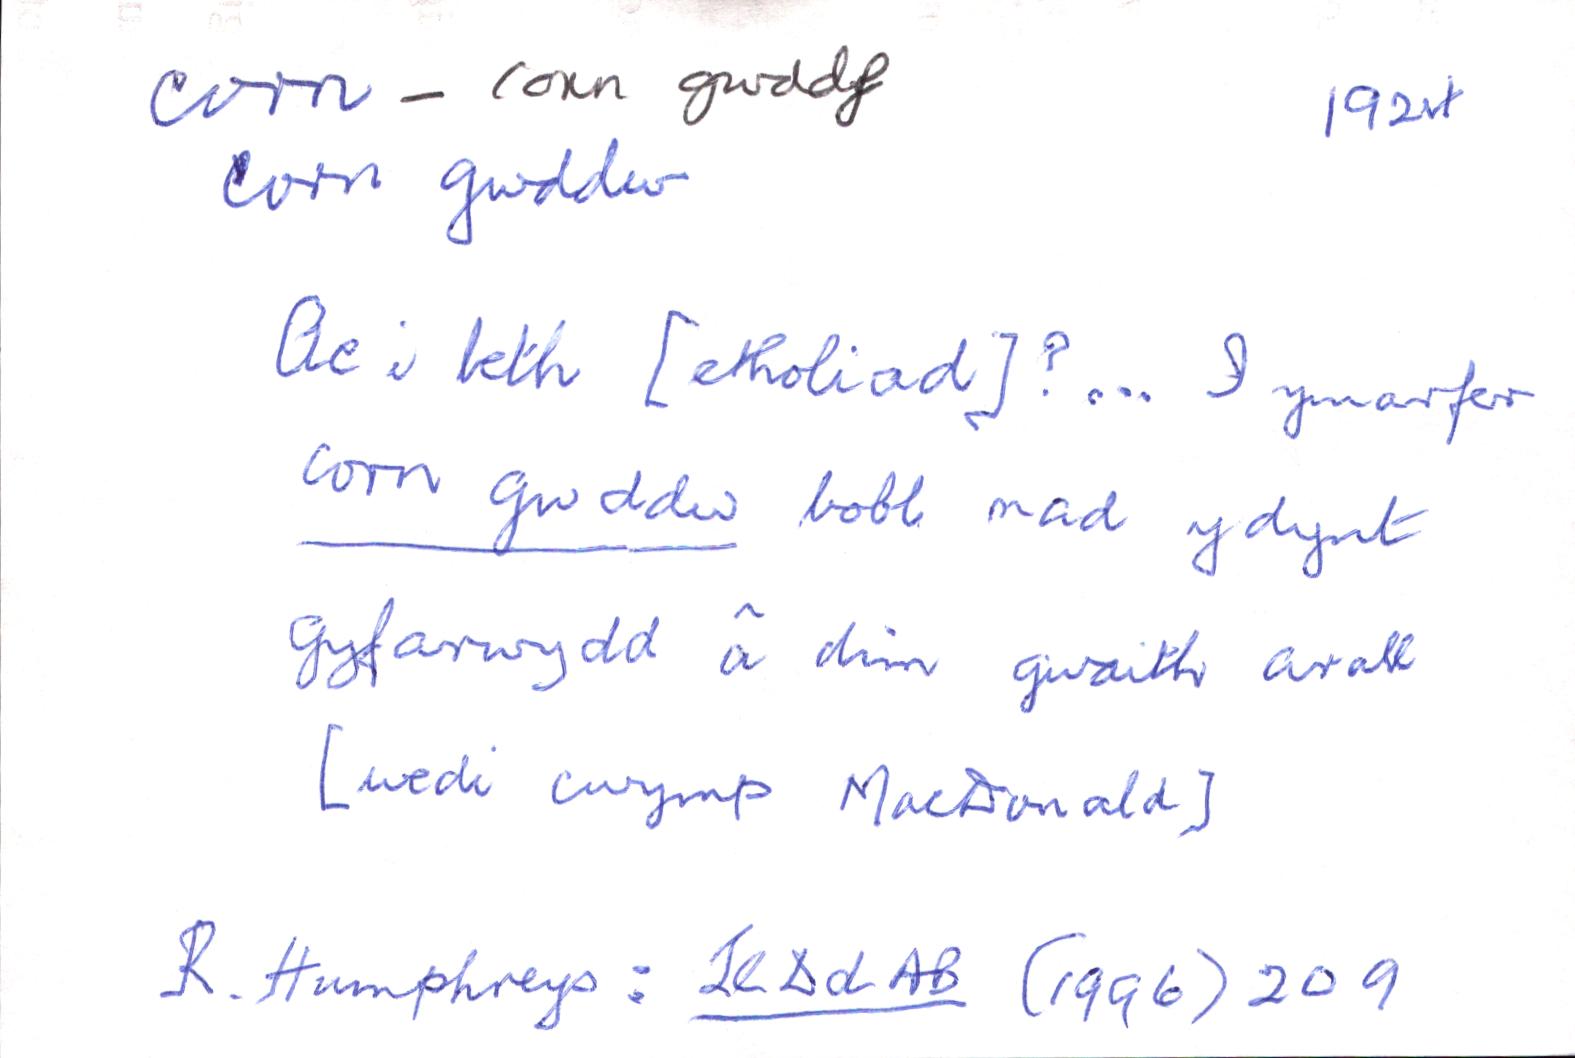 corn – corn gwddf
1924
corn gwddw
Ac i beth [etholiad]?... I ymarfer
corn gwddw bobl nad ydynt
gyfarwydd â dim gwaith arall
[wedi cwymp MacDonald]
R. Humphreys: DdAB (1996) 209